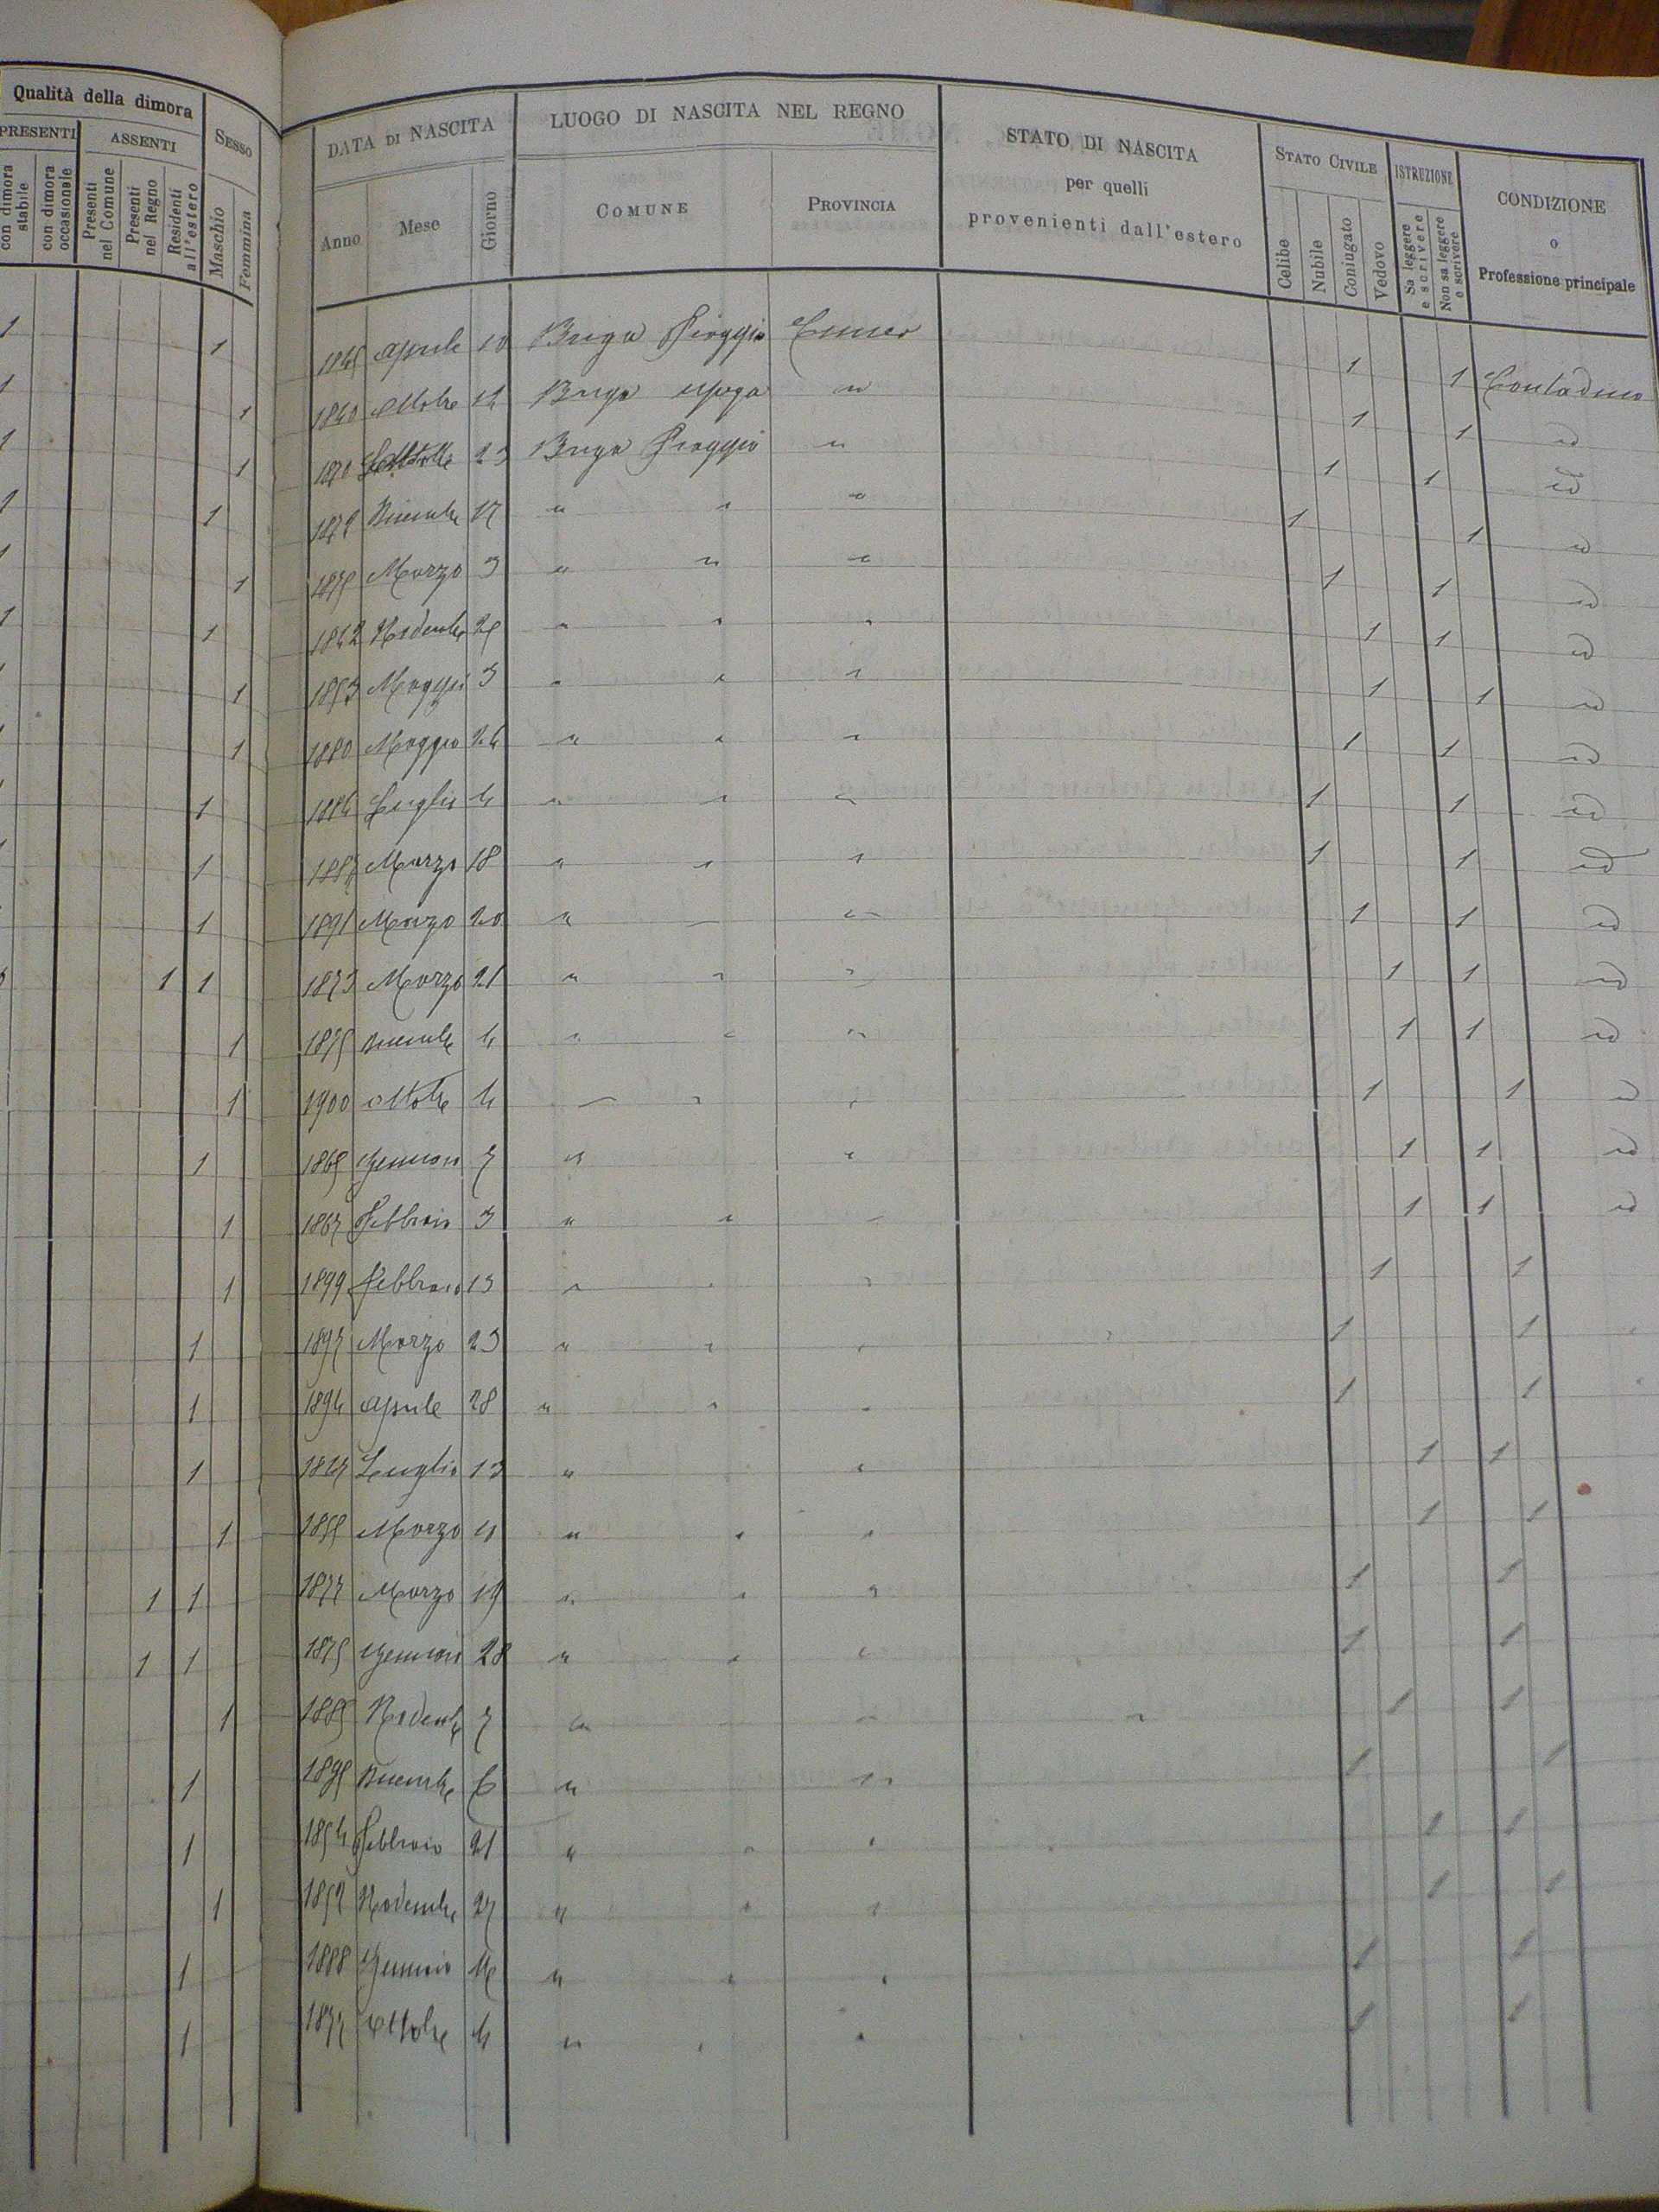 Qualità della dimora
PRESENTI ASSENTI SESSO
con dimora stabile
con dimora occasionale
Presenti nel Comune
Presenti nel Regno
Residenti all'estero
Maschio
Femmina
DATA DI NASCITA LUOGO DI NASCITA NEL REGNO STATO DI NASCITA per quelli provenienti dall'estero STATO CIVILE ISTRUZIONE CONDIZIONE o Professione principale
Anno Mese Giorno COMUNE PROVINCIA
Celibe
Nubile
Coniugato
Vedovo
Sa leggere e scrivere
Non sa leggere e scrivere
1 1 Aprile 10 Briga Cuneo 1 1 Contadino
1 1 1840 Ottobre Briga 1 1 id
1 1 23 Briga 1 1 id
1 1 1879 Dicembre 17 " " " 1 1 id
1 1 Marzo 3 " " " 1 1 id
1 1 1842 Novembre " " " 1 1 id
1 1853 Maggio 3 " " " 1 1 id
1 1880 Maggio " " " 1 1 id
1 Luglio 4 " " " 1 1 id
1 Marzo 18 " " " 1 1 id
1 1891 Marzo 20 " " " 1 1 id
1 1 1873 Marzo 21 " " " 1 1 id
1 1875 Dicembre 4 " " " 1 1 id
1 1900 Ottobre 4 " " " 1 1 id
1 Gennaio 7 " " 1 1 id
1 1867 Febbraio 3 " " " 1 1 id
1 1899 Febbraio 13 " " " 1 1
1 1897 Marzo 23 " " " 1 1
1 1894 Aprile 28 " " " 1 1
1 Luglio 13 " " 1 1
1 Marzo 11 " " " 1 1
1 1 1877 Marzo 19 " " " 1 1
1 1 1875 Gennaio 28 " " " 1 1
1 1885 Novembre 7 " " " 1 1
1 Dicembre 6 " " 1 1
1 1854 Febbraio 21 " " " 1 1
1 1852 Novembre 27 " " " 1 1
1 1888 Gennaio " " " 1 1
1 1877 Ottobre 4 " " " 1 1